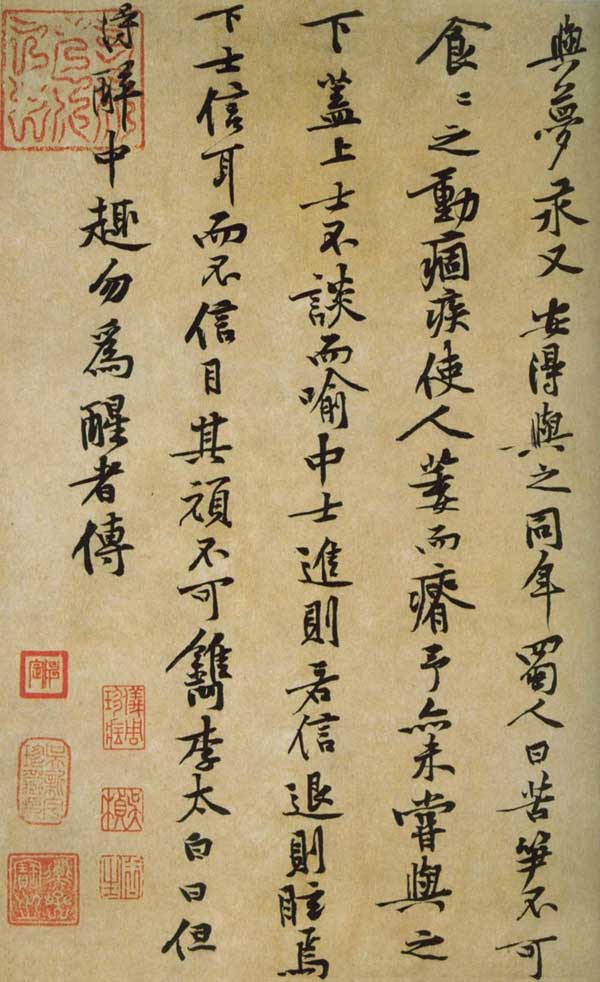 與夢永又安得與之同年蜀人曰苦笋不可
食〻之動痼疾使人萎而瘠予亦未嘗與之
下蓋上士不談而喻中士進則若信退則眩焉
下士信耳而不信目其頑不可鐫李太白曰但
得醉中趣勿爲醒者傳
儀周珍藏
吳楨